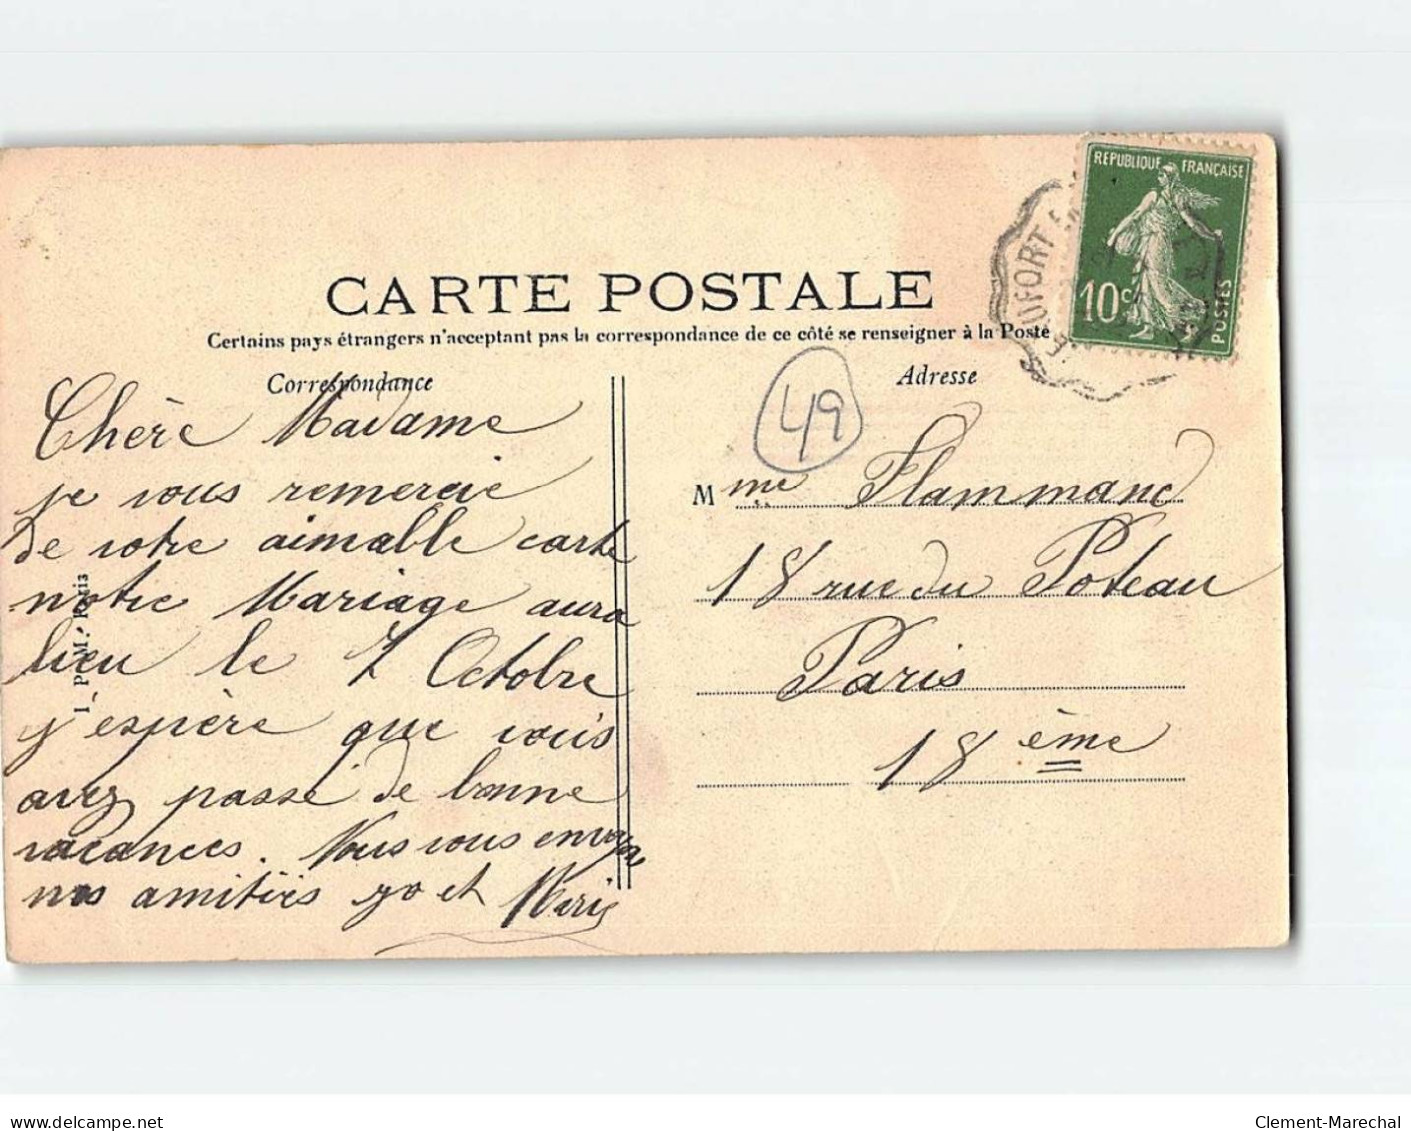 RÉPUBLIQUE FRANÇAISE
10 c
POSTES
UFORT
CARTE POSTALE
Certains pays étrangers n'acceptent pas la correspondance de ce côté se renseigner à la Poste
Correspondance
Adresse
49
Chère Madame
je vous remercie
de votre aimable carte
notre Mariage aura
lieu le 7 Octobre
j'espère que vous
avez passé de bonne
vacances. Nous vous envoyons
nos amitiés et Marie
M me Flammand
18 rue du Poteau
Paris
18 ème
I. P. M. Paris
www.delcampe.net
Clement-Marechal